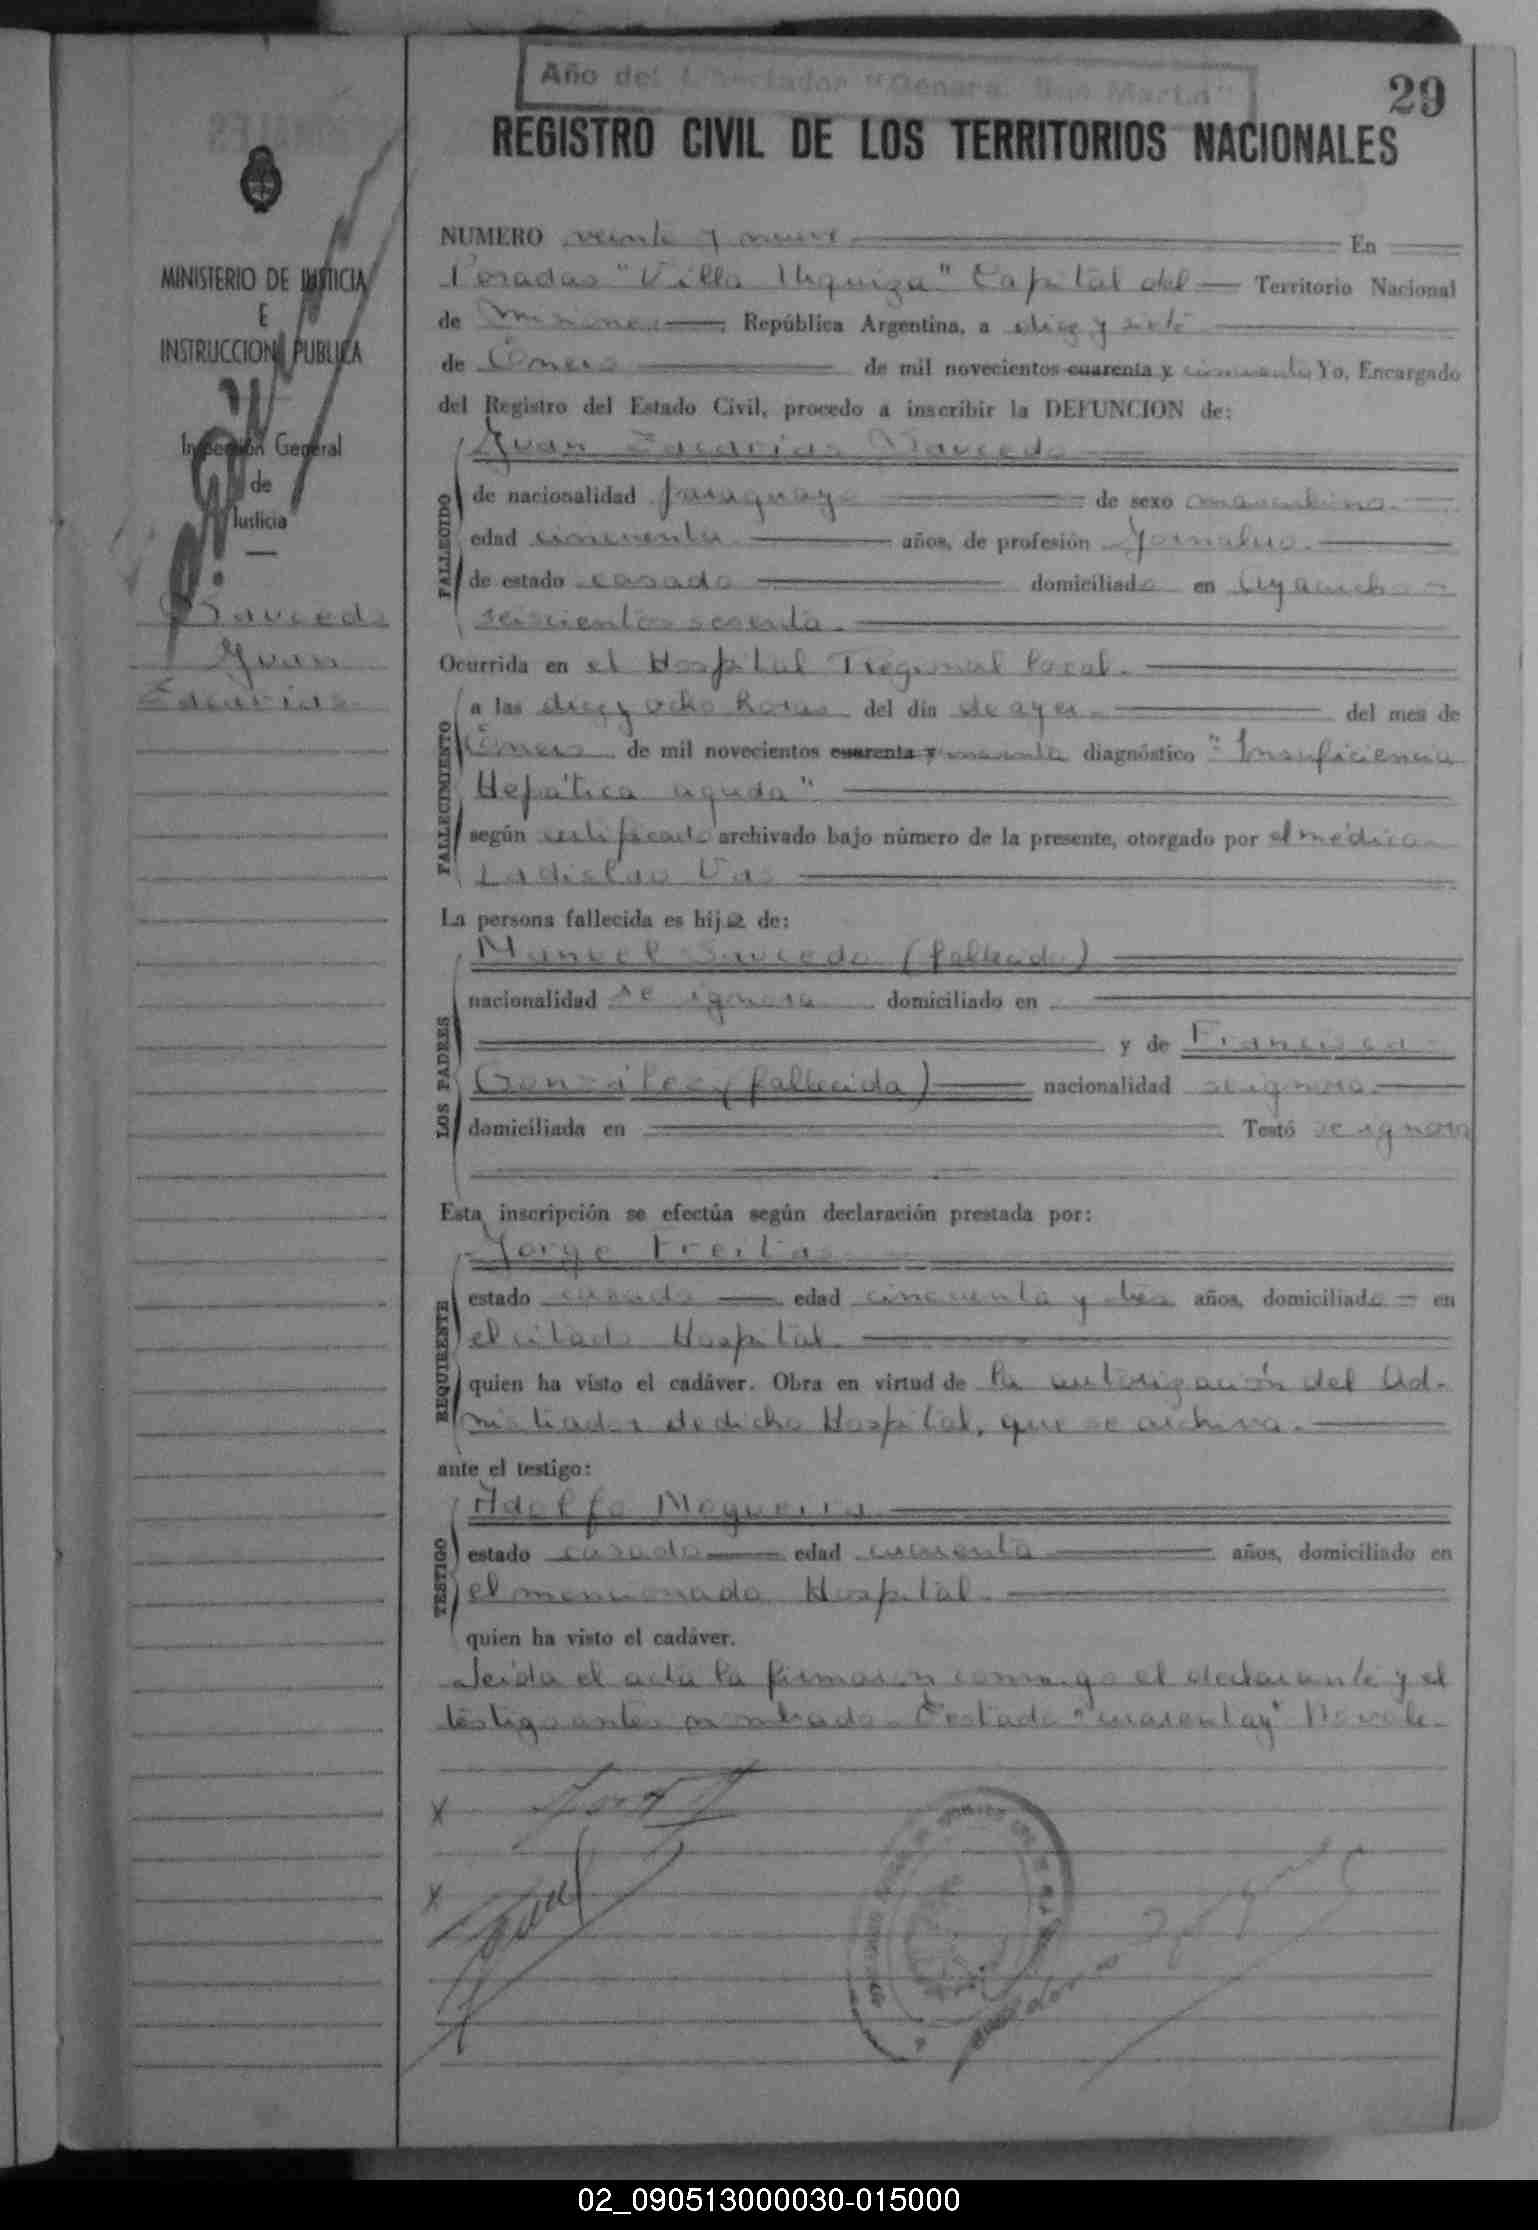 Año del Libertador "General San Martin"
29
REGISTRO CIVIL DE LOS TERRITORIOS NACIONALES
MINISTERIO DE JUSTICIA
E
INSTRUCCION PUBLICA
Inspección General
de
Justicia
Sauceda
Juan
Zacarias
NUMERO veinte y nueve En
Posadas "Villa Urquiza" Capital del Territorio Nacional
de Misiones República Argentina, a diez y siete
de Enero de mil novecientos cuarenta y cincuenta Yo, Encargado
del Registro del Estado Civil, procedo a inscribir la DEFUNCION de:
Juan Zacarias Sauceda
FALLECIDO
de nacionalidad paraguaya de sexo masculino.
edad cincuenta años, de profesión Jornalero.
de estado casado domiciliado en Ayacucho
seiscientos sesenta.
Ocurrida en el Hospital Regional local.
FALLECIMIENTO
a las diez y ocho horas del día de ayer del mes de
Enero de mil novecientos cuarenta y cincuenta diagnóstico "Insuficiencia
Hepática aguda"
según certificado archivado bajo número de la presente, otorgado por el médico
Ladislao Vas
La persona fallecida es hijo de:
LOS PADRES
Manuel Sauceda (fallecido)
nacionalidad se ignora domiciliado en
y de Francisca
González (fallecida) nacionalidad se ignora.
domiciliada en Testó se ignora
Esta inscripción se efectúa según declaración prestada por:
REQUIRENTE
Jorge Freitas
estado casado edad cincuenta y tres años, domiciliado en
el citado Hospital.
quien ha visto el cadáver. Obra en virtud de la autorización del Ad-
mistrador de dicho Hospital, que se archiva.
ante el testigo:
TESTIGO
Adolfo Nogueira
estado casado edad cuarenta años, domiciliado en
el mencionado Hospital.
quien ha visto el cadáver.
Leída el acta la firmaron conmigo el declarante y el
testigo antes nombrado. Testado "cuarenta y" No vale.
X
X
02_090513000030-015000